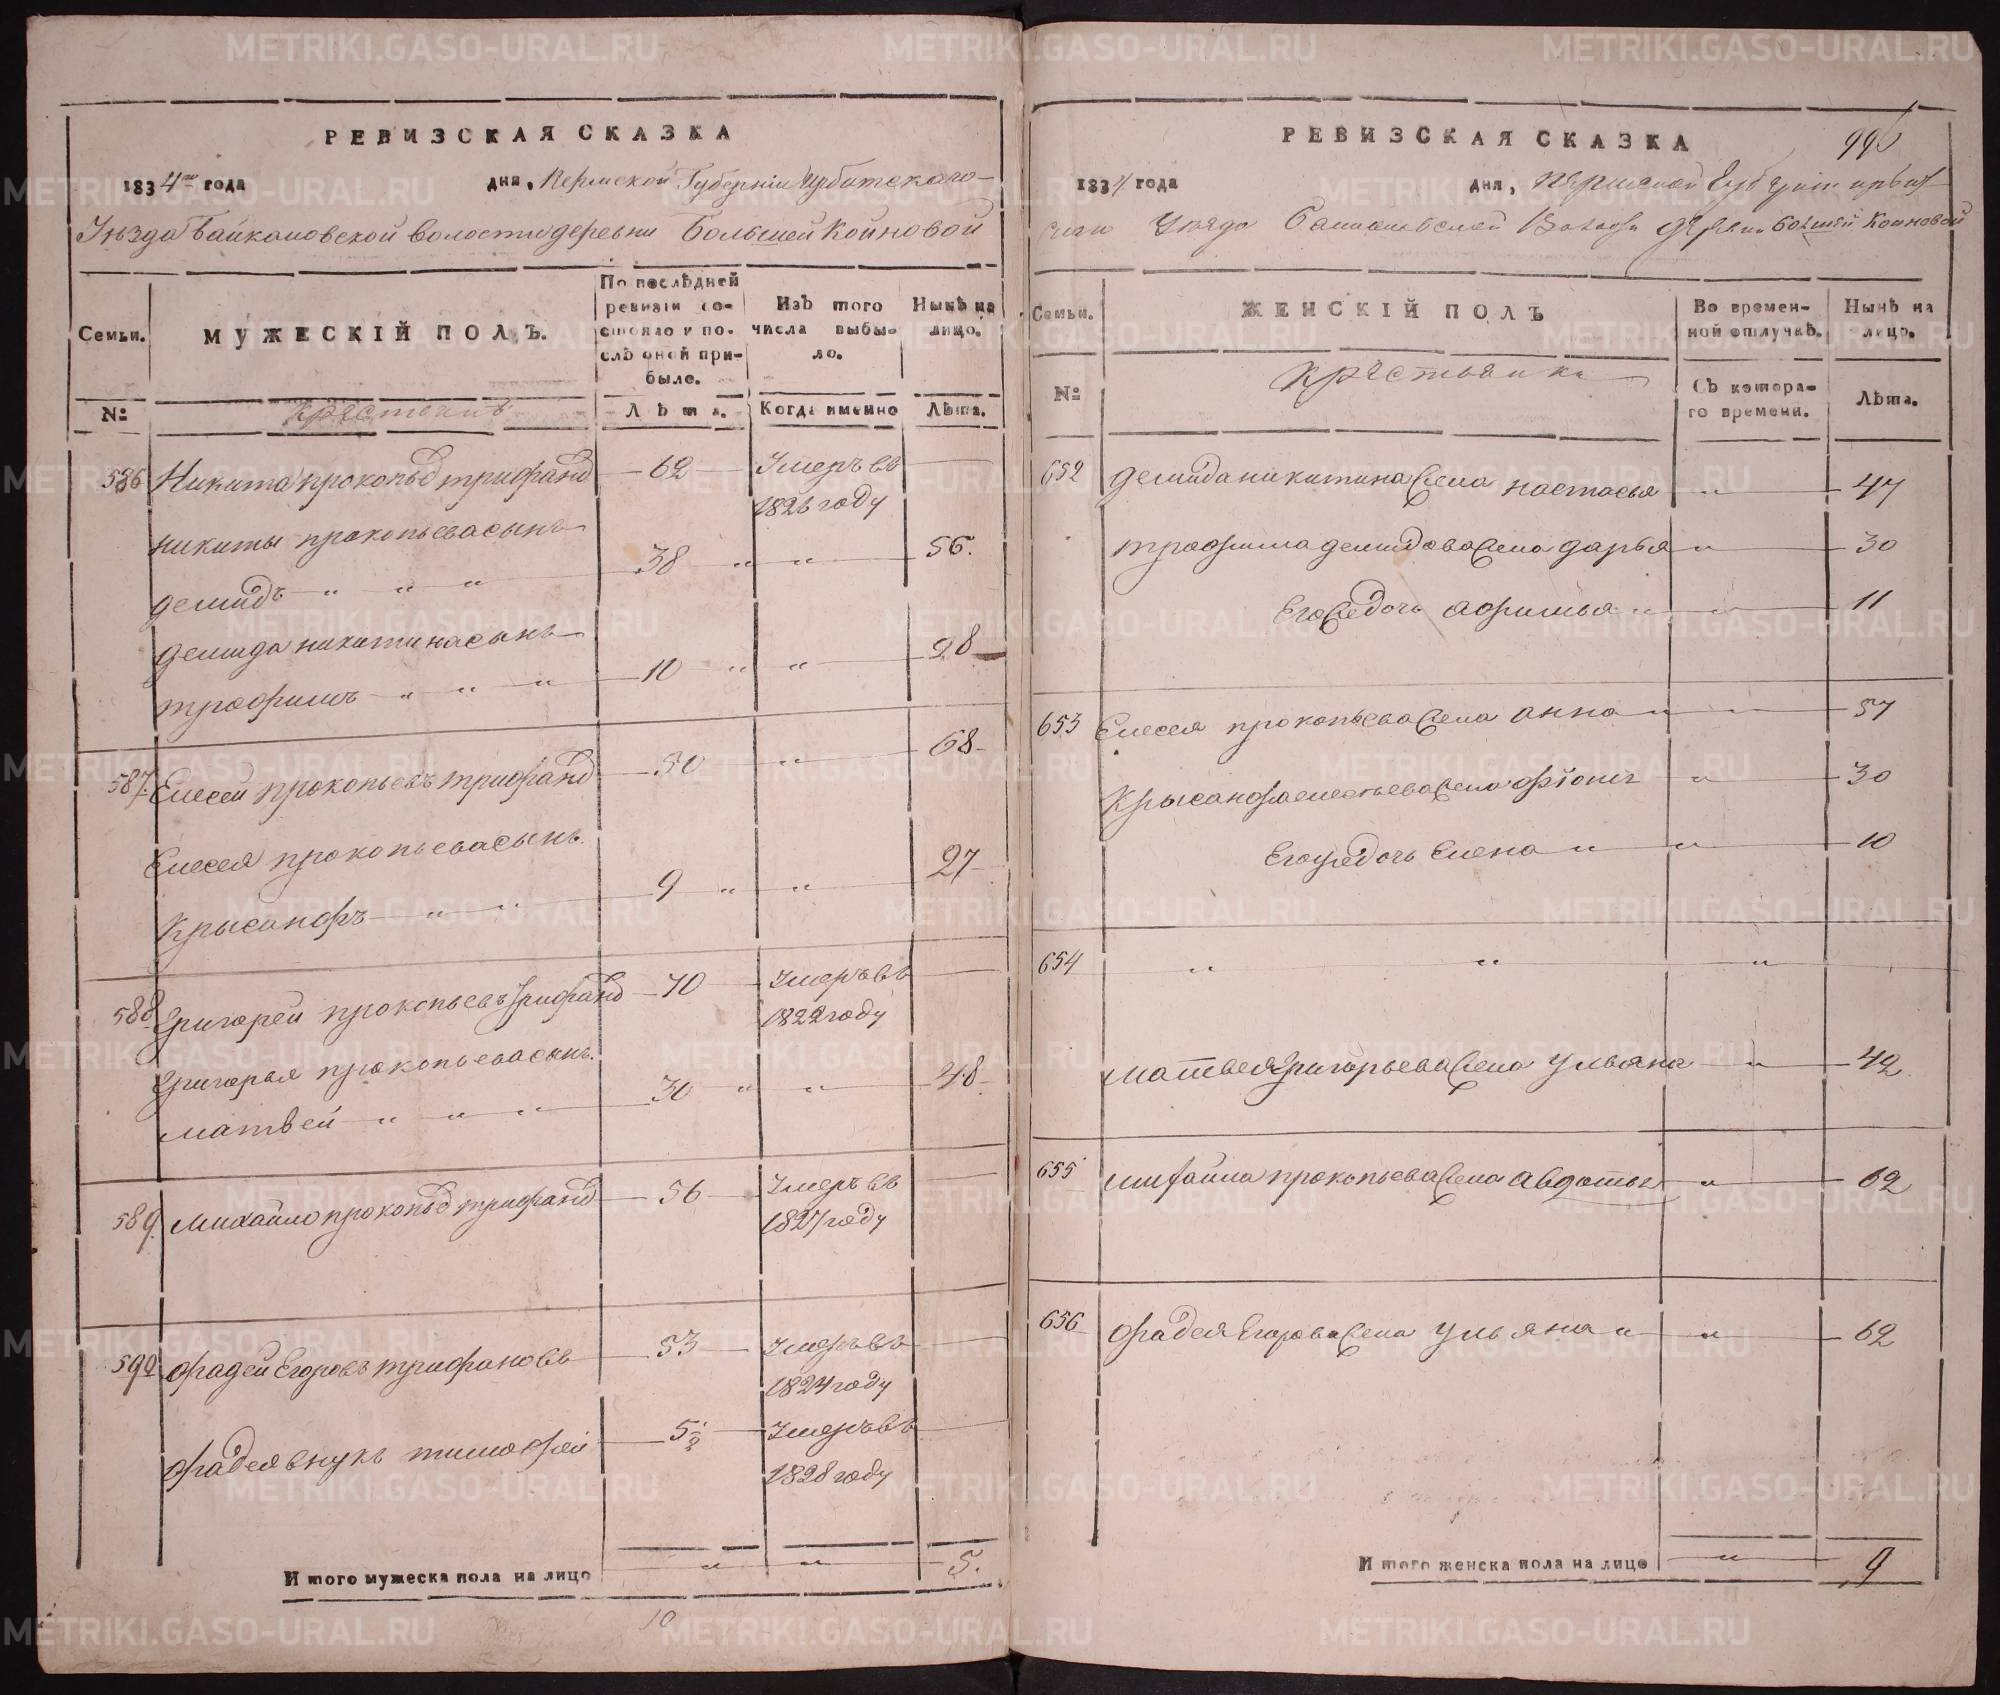 РЕВИЗСКАЯ СКАЗКА
1834го года дня, Пермской Губерніи Ирбитскаго
Уѣзда Байкаловской волости деревни Большей Койновой
Семьи.
МУЖЕСКІЙ ПОЛЪ.
По послѣдней ревизіи состояло и послѣ оной прибыло.
Изъ того числа выбыло.
Нынѣ на лицо.
№
Крестьянъ
Лѣта.
Когда именно
Лѣта.
586 Никита прокопьв трифанв 62 Умеръ въ
1826 году
никиты прокопьева сынъ
демидъ 38 56.
демида никитина сынъ
трофимъ 10 28
587. Елесей прокопьевъ трифанв 50 68
Елесея прокопьева сынъ.
Крысанфъ 9 27
588 Григорей прокопьевъ трифанв 70 Умеръ въ
1822 году
Григорья прокопьева сынъ.
матвей 30 48
589. Михайло прокопьв трифанв 56 Умеръ въ
1827 году
590 фадей Егоровъ трифановъ 53 Умеръ въ
1824 году
фадея внукъ тимофей 5½ Умеръ въ
1828 году
Итого мужеска пола на лицо 5.
10
РЕВИЗСКАЯ СКАЗКА
996
1834 года дня, пермской Губерніи ирбит
скаго Уезда Байкаловской Волости деревни Большей Койновой
Семьи.
ЖЕНСКІЙ ПОЛЪ
Во временной отлучкѣ.
Нынѣ на лицо.
№
Крестьянка
Съ котораго времени.
Лѣта.
652 демида никитина жена настасья 47
трофима демидова жена дарья 30
Его же дочь афимья 11
653 Елесея прокопьева жена анна 57
Крысанфа елесеева жена 30
Его же дочь Елена 10
654
матвея григорьева жена Ульяна 42
655 михайла прокопьева жена авдотья 62
656 фадея Егорова жена ульяна 62
Итого женска пола на лицо 9
METRIKI.GASO-URAL.RU